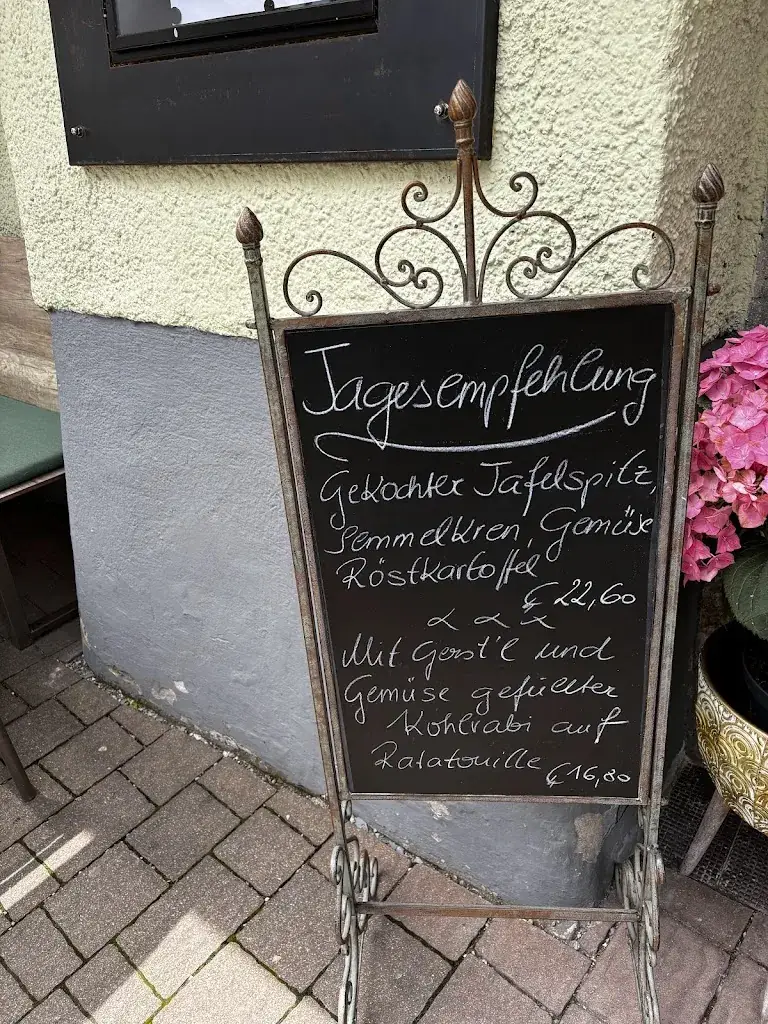 Tagesempfehlung
Gekochter Tafelspitz,
Semmelkren, Gemüse
Röstkartoffel
€ 22,60
Mit Gerst'l und
Gemüse gefüllter
Kohlrabi auf
Ratatouille € 16,80